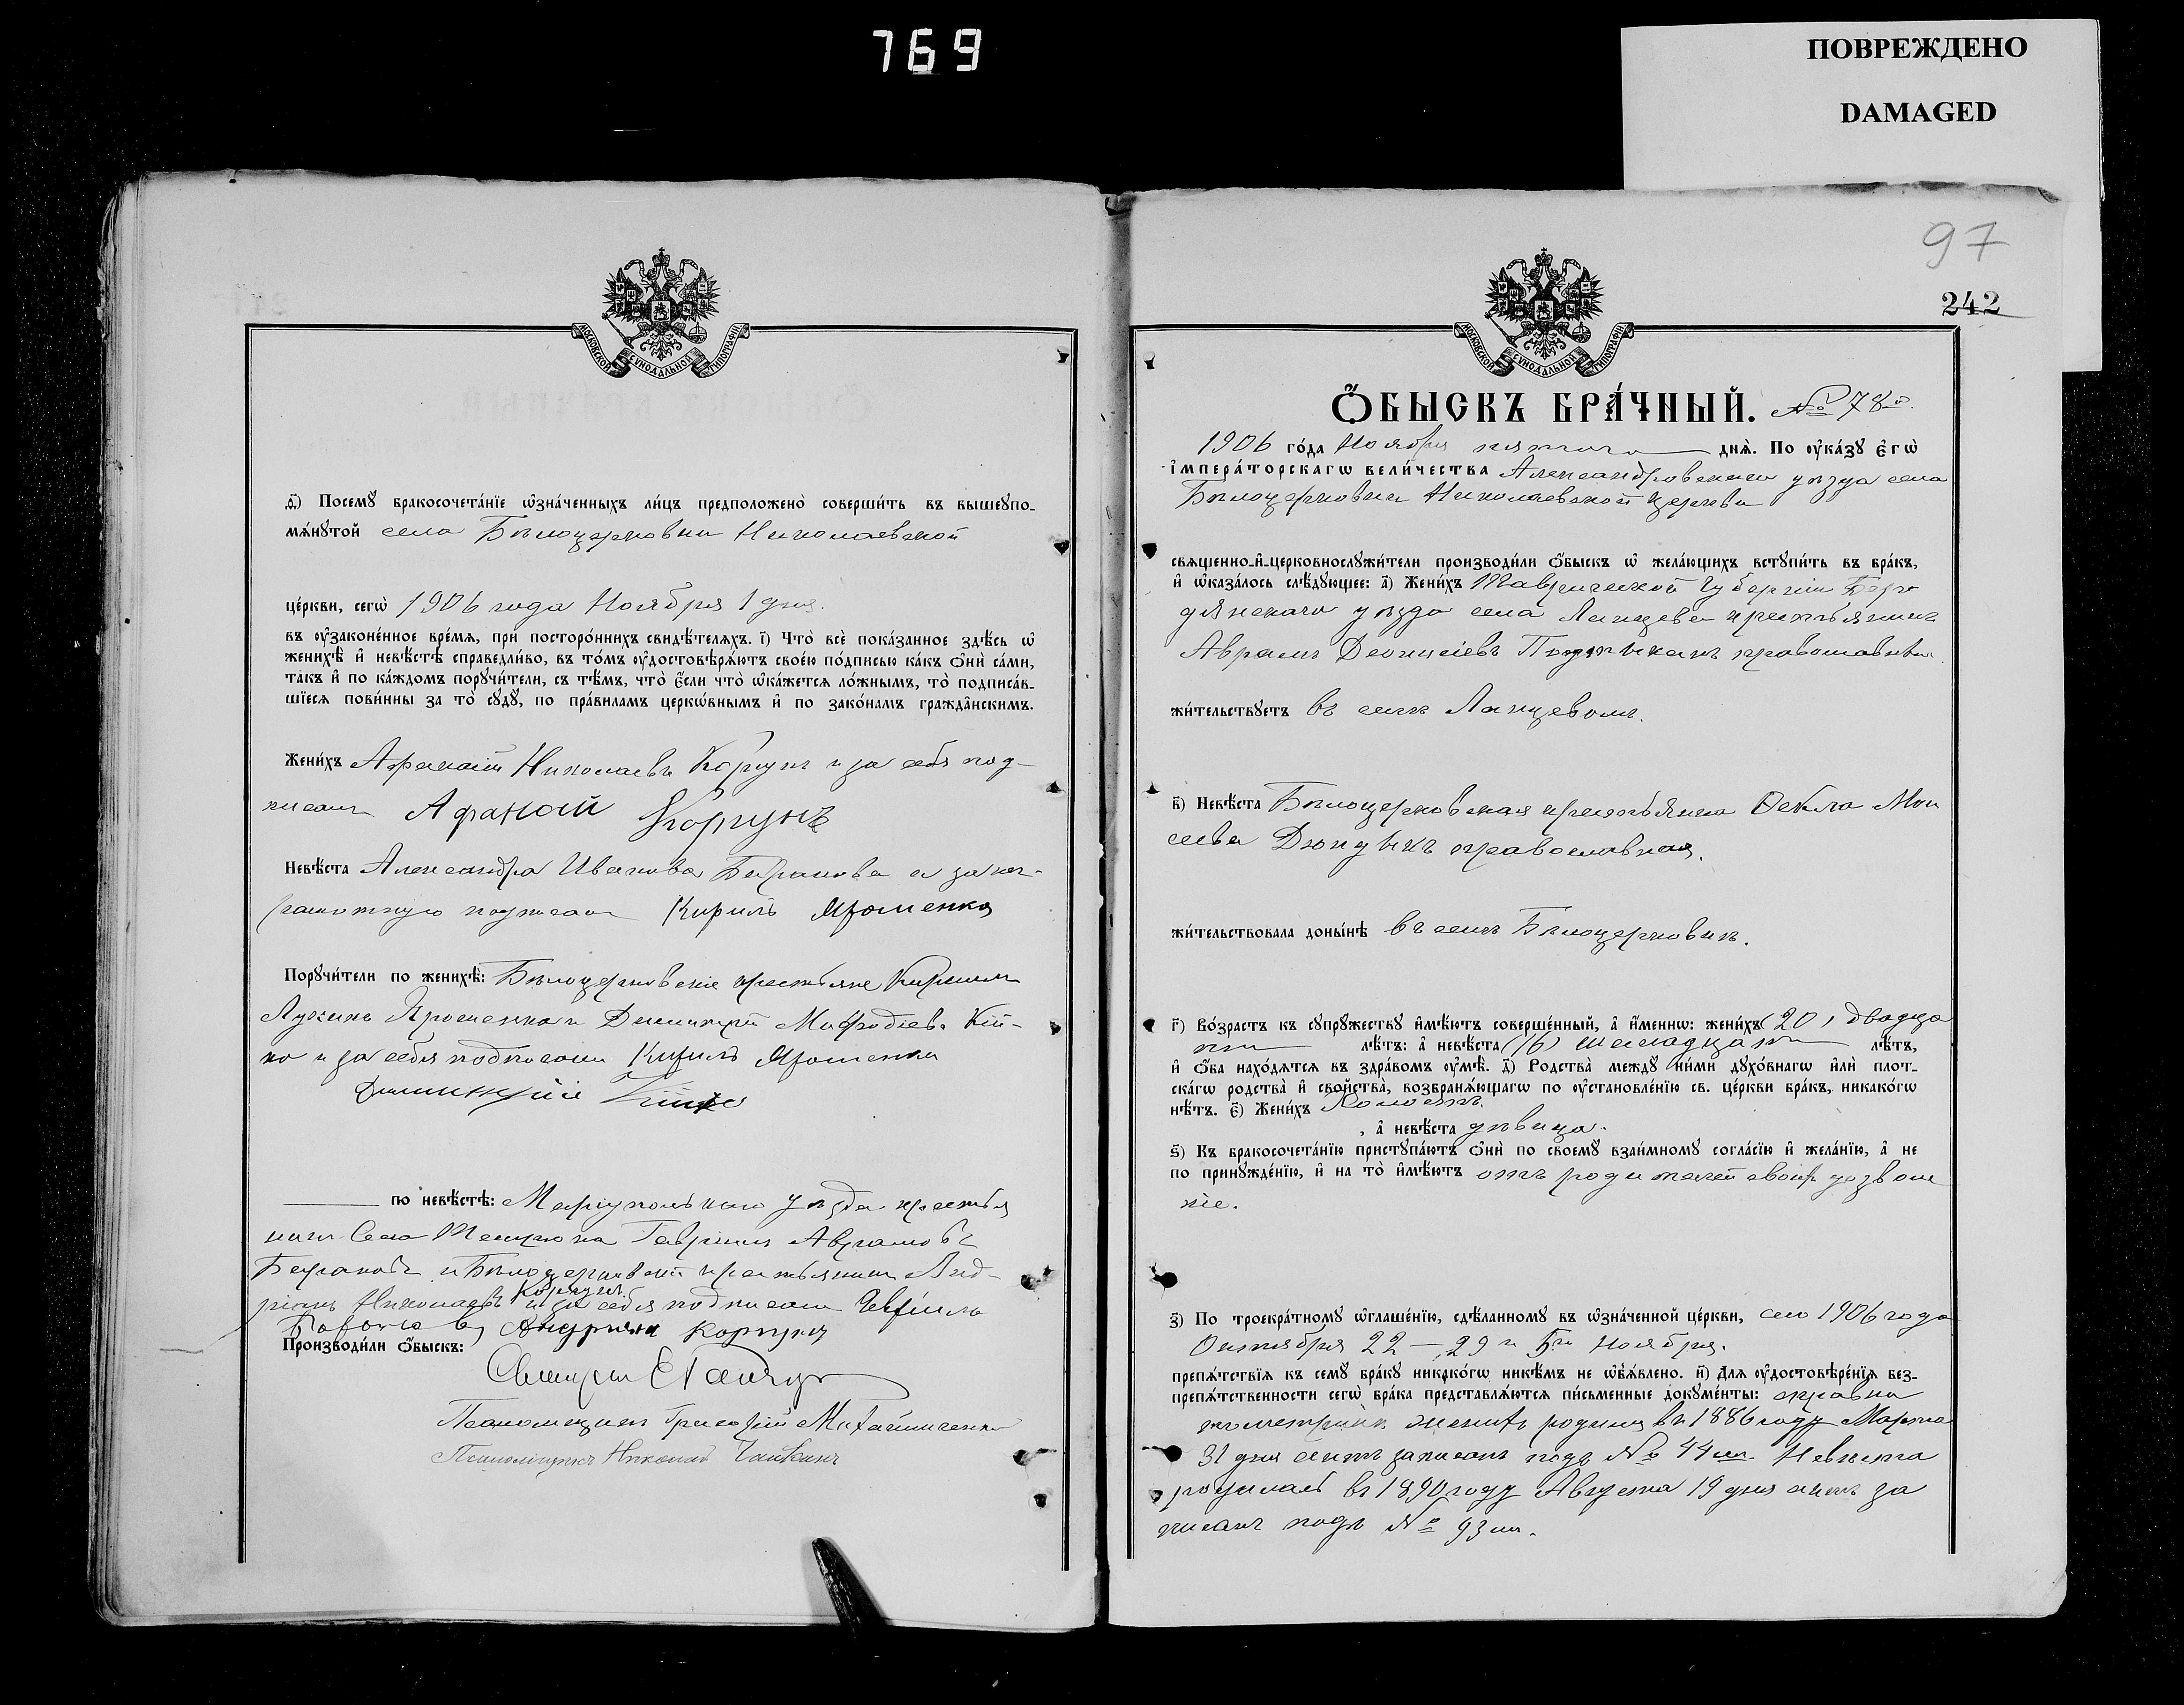 769
ПОВРЕЖДЕНО
DAMAGED
97
242
МОСКОВСКОЙ СУНОДАЛЬНОЙ ТИПОГРАФІИ
Посемꙋ бракосочетанїе ѡзначенныхъ лицъ предположено совершить въ вышеупо-
мѧнꙋтой села Бѣлоцерковки Николаевской
церкви, сегѡ 1906 года Ноября 1 дня.
въ оузаконенное время, при постороннихъ свидѣтеляхъ. ї) Что все показанное здѣсь ѡ
женихѣ и невѣстѣ справедливо, въ томъ оудостовѣряютъ своею подписью какъ они сами,
такъ и по каждомъ порꙋчители, съ тѣмъ, что если что ѡкажется ложнымъ, то подписав-
шїеся повинны за то сꙋдꙋ, по правиламъ церкѡвнымъ и по законамъ гражданскимъ.
Женихъ Афанасій Николаевъ Коргунъ и за себя под-
писалъ Афанасій Коргунъ
Невѣста Александра Иванова Баранова а за не-
грамотную подписалъ Кирилъ Ярошенко
Порꙋчители по женихѣ: Бѣлоцерковскіе крестьяне Кирилъ
Лукинъ Ярошенко и Димитрій Мефодіевъ Кій-
ко и за себя подписали Кирилъ Ярошенко
Димитрій Кійко
по невѣстѣ: Маріупольскаго уѣзда крестья
нинъ Села Гавріилъ Аврамовъ
Барановъ и Бѣлоцерковскій крестьянинъ Анд-
ріянъ Николаевъ Коргунъ и за себя подписали Гавріилъ
Барановъ Андріянъ Коргунъ
Производили Обыскъ:
Священникъ Е
Псаломщикъ Григорій Михайличенко
Псаломщикъ Николай Чайкинъ
МОСКОВСКОЙ СУНОДАЛЬНОЙ ТИПОГРАФІИ
ОБЫСКЪ БРАЧНЫЙ. № 78й
1906 года Ноября пятаго дня. По оуказꙋ Егѡ
Императорскагѡ Величества Александровскаго уѣзда села
Бѣлоцерковки Николаевской церкви
священно-и-церковнослꙋжители производили Обыскъ ѡ желающихъ вступить въ бракъ,
и ѡказалось слѣдꙋющее: а) Женихъ Таврической Губерніи Бер
дянскаго уѣзда села Ланцева крестьянинъ
Аврамъ Деонисіевъ православный
жительствꙋетъ въ селѣ Ланцевомъ.
в) Невѣста Бѣлоцерковская крестьянка Ѳекла Мои
сеева Дюндикъ православная.
жительствовала донынѣ въ селѣ Бѣлоцерковкѣ.
г) Возрастъ къ сꙋпрꙋжествꙋ имѣютъ совершенный, а именнѡ: женихъ (20) двадца
ти лѣтъ: а невѣста (16) шестнадцати лѣтъ,
и Оба находятся въ здравомъ оумѣ. д) Родства междꙋ ними дꙋховнагѡ или плот-
скагѡ родства и свойства, возбраняющагѡ по оустановленїю св. церкви бракъ, никакогѡ
нѣтъ. е) Женихъ Холостъ.
, а невѣста дѣвица.
ѕ) Къ бракосочетанїю пристꙋпаютъ Они по своемꙋ взаимномꙋ согласїю и желанїю, а не
по принꙋжденїю, и на то имѣютъ отъ родителей своихъ дозволе
ніе.
з) По троекратномꙋ ѡглашенїю, сдѣланномꙋ въ ѡзначенной церкви, сего 1906 года
Октября 22-, 29 и 5го Ноября.
препятствїя къ семꙋ бракꙋ никакогѡ никѣмъ не ѡбъявлено. и) Для оудостовѣренїя без-
препятственности сегѡ брака представляются письменные докꙋменты: справки
по метрикѣ женихъ родился въ 1886 году Марта
31 дня актъ записанъ подъ № 44мъ. Невѣста
родилась въ 1890 году Августа 19 дня актъ за
писанъ подъ № 93мъ.